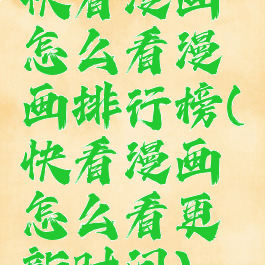 快看漫画
怎么看漫
画排行榜(
快看漫画
怎么看更
新时间)